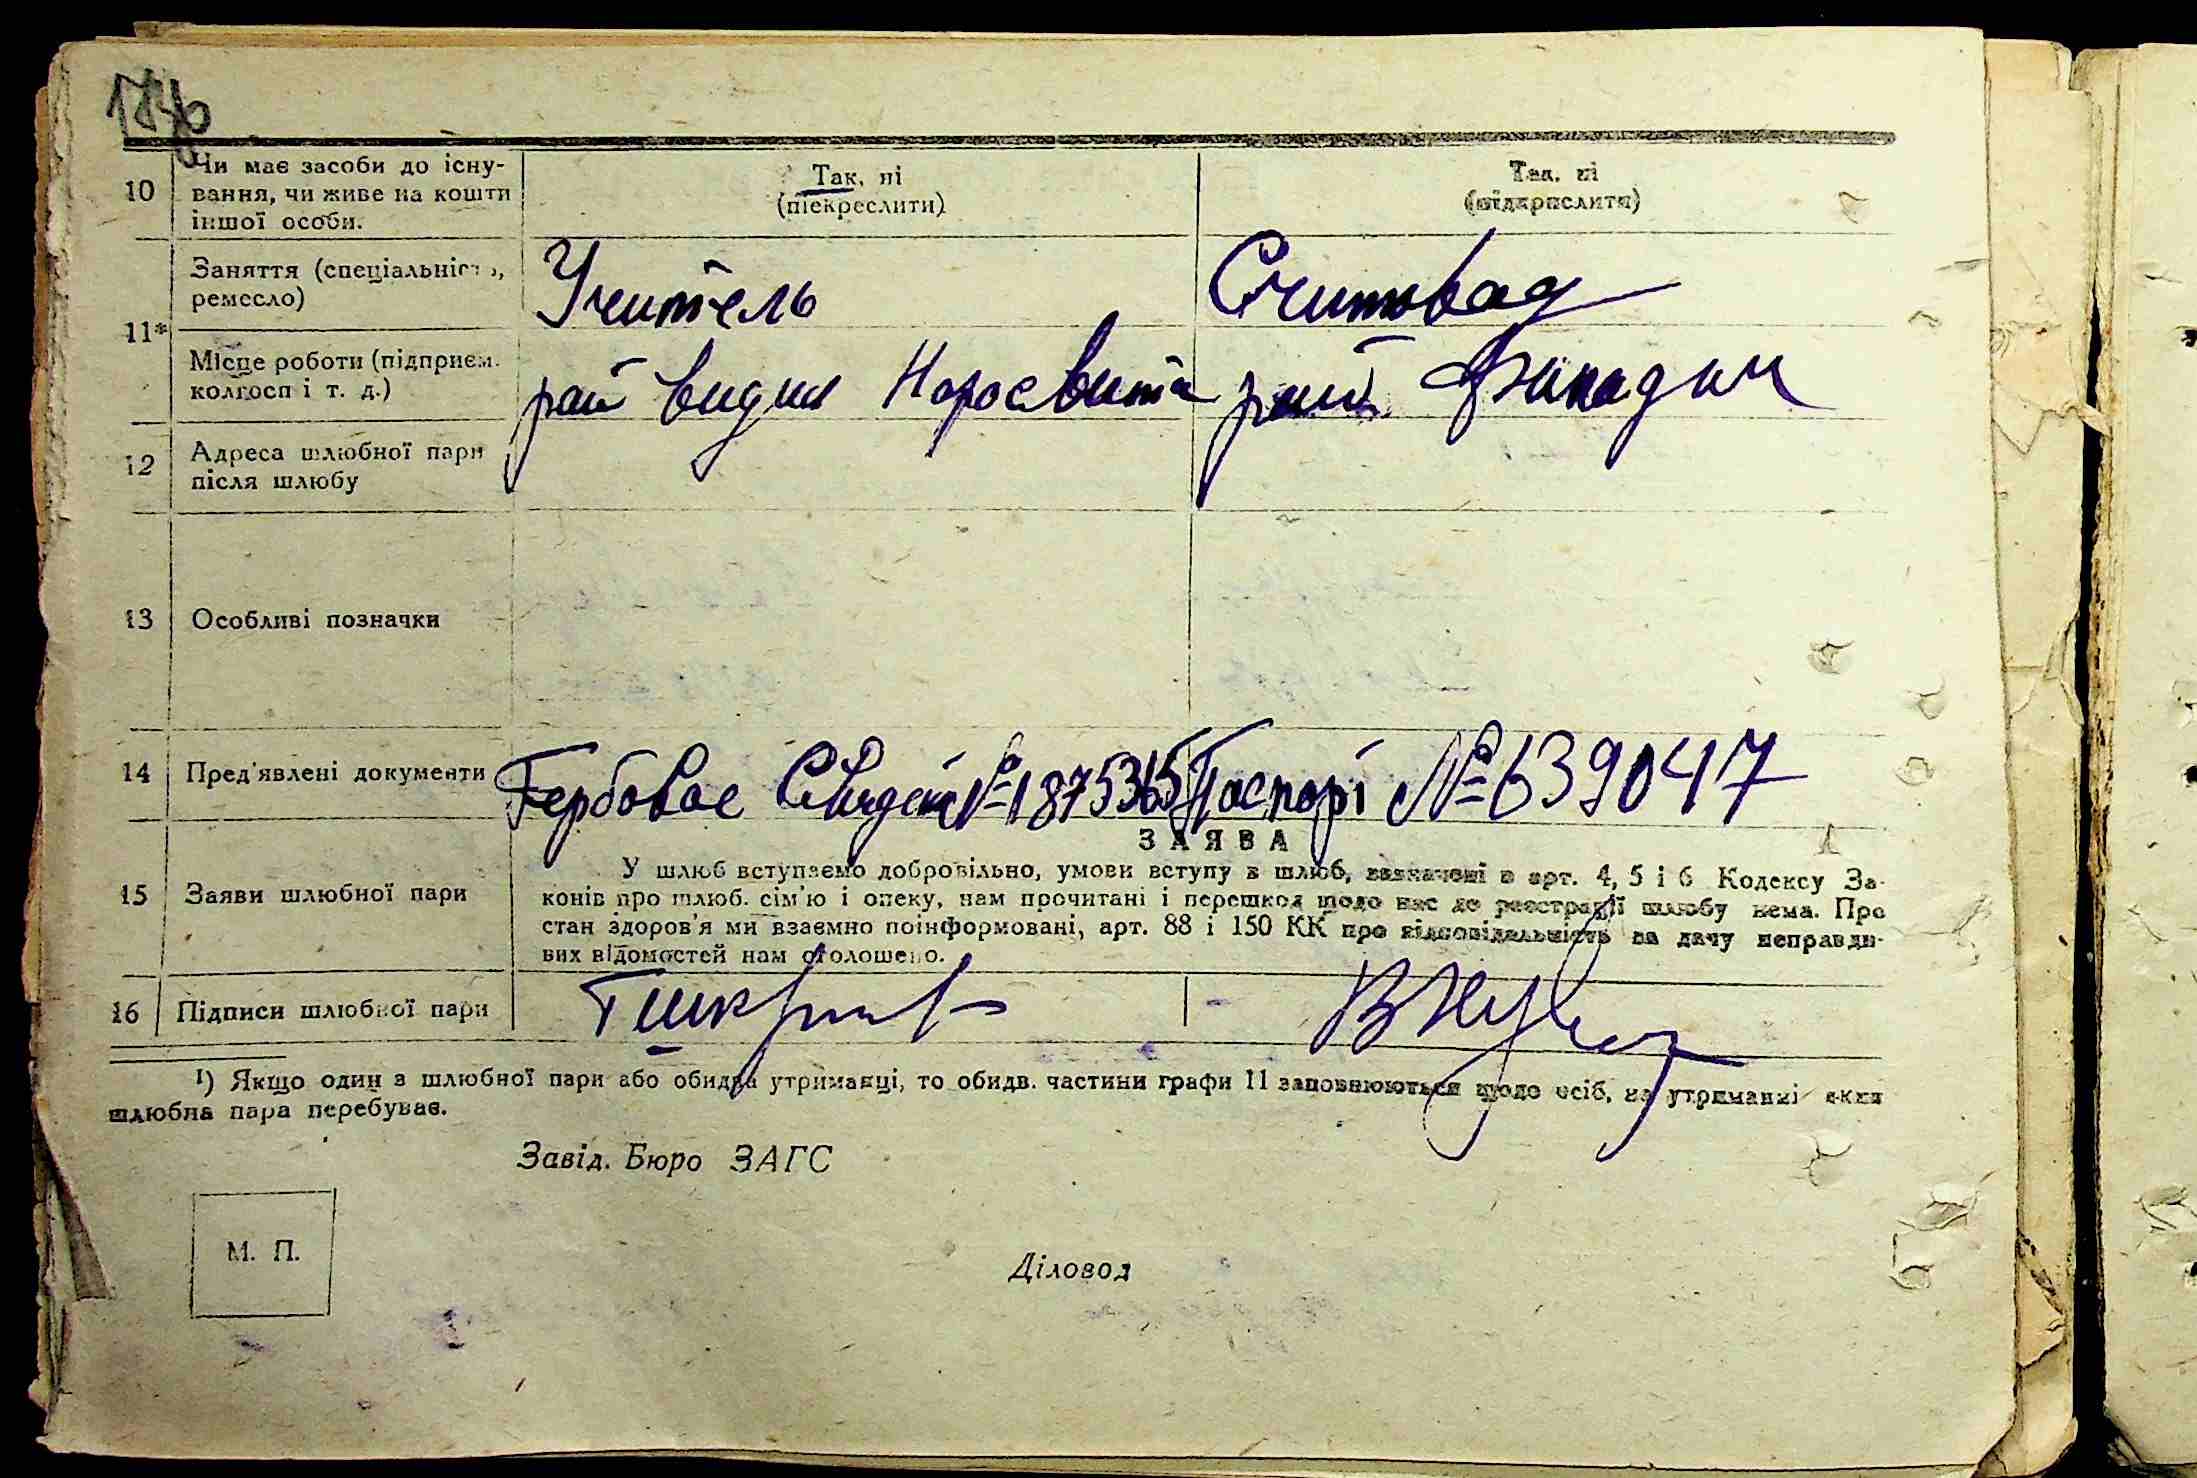 10
Чи має засоби до існу-
вання, чи живе на кошти
іншої особи.
Так, ні
(підкреслити)
Так, ні
(підкреслити)
11*
Заняття (спеціальність,
ремесло)
Учитель
Считовод
Місце роботи (підприєм.
колгосп і т. д.)
рай
рай
12
Адреса шлюбної пари
після шлюбу
13
Особливі позначки
14
Пред'явлені документи
Гербовое №1875365
Паспорт №639047
ЗАЯВА
15
Заяви шлюбної пари
У шлюб вступаємо добровільно, умови вступу в шлюб, зазначені в арт. 4, 5 і 6 Кодексу За-
конів про шлюб. сім'ю і опеку, нам прочитані і перешкод щодо нас до реєстрації шлюбу нема. Про
стан здоров'я ми взаємно поінформовані, арт. 88 і 150 КК про відповідальність за дачу неправди-
вих відомостей нам оголошено.
16
Підписи шлюбної пари
¹) Якщо один з шлюбної пари або обидва утриманці, то обидв. частини графи 11 заповнюються щодо осіб, на утриманні яких
шлюбна пара перебуває.
Завід. Бюро ЗАГС
М. П.
Діловод